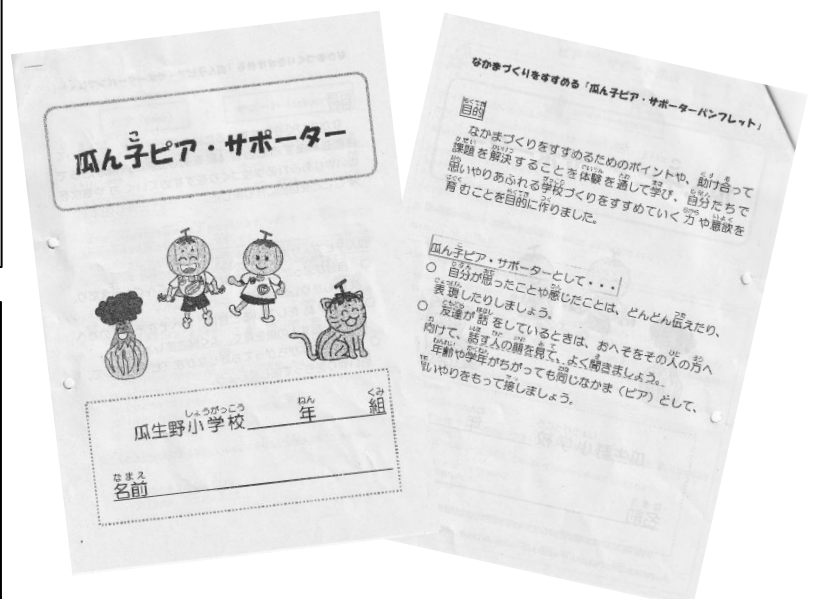 瓜ん子ピア・サポーター
瓜生野小学校 年 組
名前
なかまづくりをすすめる「瓜ん子ピア・サポーターパンフレット」
目的
なかまづくりをすすめるためのポイントや、助け合って
課題を解決することを体験を通して学び、自分たちで
思いやりあふれる学校づくりをすすめていく力や意欲を
育むことを目的に作りました。
瓜ん子ピア・サポーターとして・・・
○ 自分が思ったことや感じたことは、どんどん伝えたり、
表現したりしましょう。
○ 友達が話をしているときは、おへそをその人の方へ
向けて、話す人の顔を見て、よく聞きましょう。
年齢や学年がちがっても同じなかま(ピア)として、
いやりをもって接しましょう。